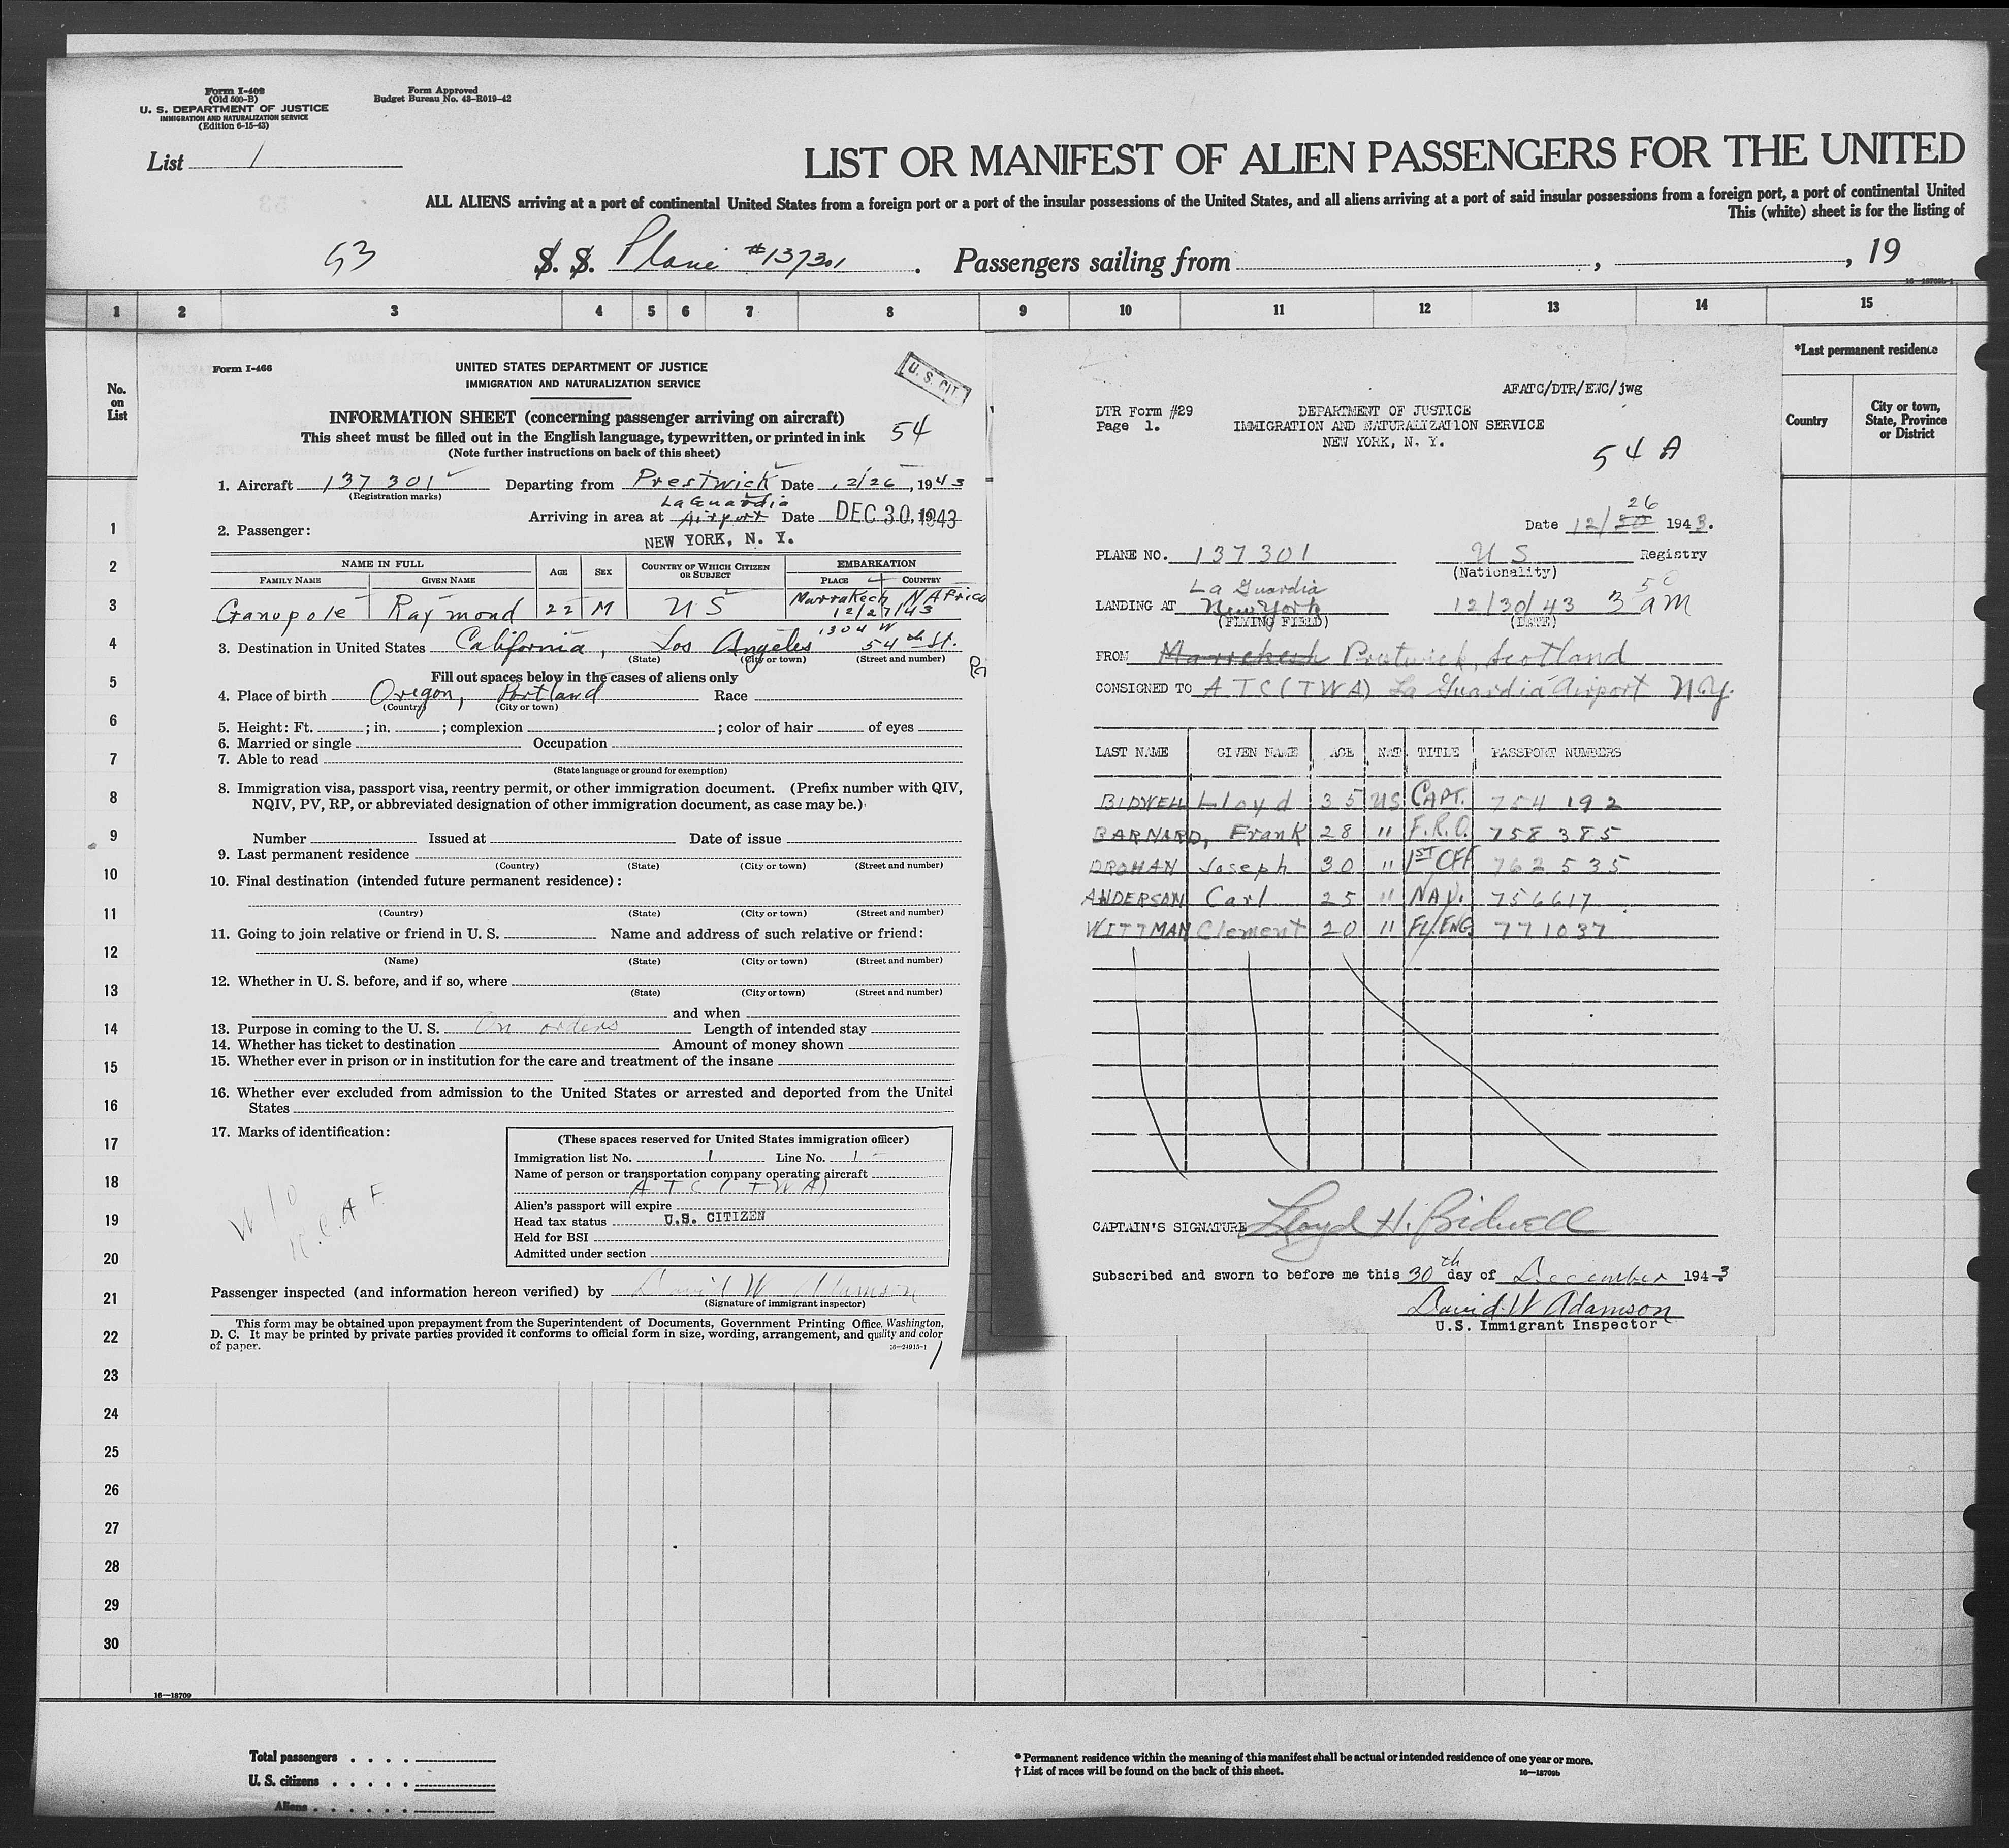 Form I-402
(Old 500-B)
U. S. DEPARTMENT OF JUSTICE
IMMIGRATION AND NATURALIZATION SERVICE
(Edition 6-15-43)
Form Approved
Budget Bureau No. 43-R019-42
List 1
LIST OR MANIFEST OF ALIEN PASSENGERS FOR THE UNITED
ALL ALIENS arriving at a port of continental United States from a foreign port or a port of the insular possessions of the United States, and all aliens arriving at a port of said insular possessions from a foreign port, a port of continental United
This (white) sheet is for the listing of
53 S. S. Plane #137301 . Passengers sailing from , , 19
1 2 3 4 5 6 7 8 9 10 11 12 13 14 15
No. on List
*Last permanent residence
Country
City or town, State, Province or District
Form I-466
UNITED STATES DEPARTMENT OF JUSTICE
IMMIGRATION AND NATURALIZATION SERVICE
U. S. CIT
INFORMATION SHEET (concerning passenger arriving on aircraft)
This sheet must be filled out in the English language, typewritten, or printed in ink 54
(Note further instructions on back of this sheet)
1. Aircraft 137301 Departing from Prestwick Date 12/26, 1943
(Registration marks)
LaGuardia
Arriving in area at Airport Date DEC 30, 1943
2. Passenger: NEW YORK, N. Y.
NAME IN FULL AGE SEX COUNTRY OF WHICH CITIZEN OR SUBJECT EMBARKATION
FAMILY NAME GIVEN NAME PLACE COUNTRY
Ganopole Raymond 22 M US Marrakech N Africa
12/27/43
1304 W
3. Destination in United States California, Los Angeles 54th St.
(State) (City or town) (Street and number)
Fill out spaces below in the cases of aliens only
4. Place of birth Oregon, Portland Race
(Country) (City or town)
5. Height: Ft. ; in. ; complexion ; color of hair of eyes
6. Married or single Occupation
7. Able to read
(State language or ground for exemption)
8. Immigration visa, passport visa, reentry permit, or other immigration document. (Prefix number with QIV,
NQIV, PV, RP, or abbreviated designation of other immigration document, as case may be.)
Number Issued at Date of issue
9. Last permanent residence
(Country) (State) (City or town) (Street and number)
10. Final destination (intended future permanent residence):
(Country) (State) (City or town) (Street and number)
11. Going to join relative or friend in U. S. Name and address of such relative or friend:
(Name) (State) (City or town) (Street and number)
12. Whether in U. S. before, and if so, where
(State) (City or town) (Street and number)
and when
13. Purpose in coming to the U. S. On orders Length of intended stay
14. Whether has ticket to destination Amount of money shown
15. Whether ever in prison or in institution for the care and treatment of the insane
16. Whether ever excluded from admission to the United States or arrested and deported from the United
States
17. Marks of identification:
W/O
R.C.A.F.
(These spaces reserved for United States immigration officer)
Immigration list No. 1 Line No. 1
Name of person or transportation company operating aircraft
ATC (TWA)
Alien's passport will expire
Head tax status U.S. CITIZEN
Held for BSI
Admitted under section
Passenger inspected (and information hereon verified) by David W Adamson
(Signature of immigrant inspector)
This form may be obtained upon prepayment from the Superintendent of Documents, Government Printing Office, Washington,
D. C. It may be printed by private parties provided it conforms to official form in size, wording, arrangement, and quality and color
of paper. 16—24915-1
1
AFATC/DTR/EWC/jwg
DTR Form #29
Page 1.
DEPARTMENT OF JUSTICE
IMMIGRATION AND NATURALIZATION SERVICE
NEW YORK, N. Y.
54 A
26
Date 12/30 1943.
PLANE NO. 137301 US Registry
(Nationality)
La Guardia
LANDING AT New York 12/30/43 3 50 am
(FLYING FIELD) (DATE)
FROM Marrekesh Prestwick, Scotland
CONSIGNED TO ATC (TWA) La Guardia Airport N.Y.
LAST NAME GIVEN NAME AGE NAT TITLE PASSPORT NUMBERS
BIDWELL Lloyd 35 US CAPT. 754 192
BARNARD, Frank 28 " F.R.O. 758 385
DROHAN Joseph 30 " 1ST OFF 762 535
ANDERSON Carl 25 " NAV. 756617
WITTMAN Clement 20 " FL/ENG. 771037
CAPTAIN'S SIGNATURE Lloyd H. Bidwell
Subscribed and sworn to before me this 30th day of December 1943
David W Adamson
U.S. Immigrant Inspector
1
2
3
4
5
6
7
8
9
10
11
12
13
14
15
16
17
18
19
20
21
22
23
24
25
26
27
28
29
30
16—18709
Total passengers . . . .
U. S. citizens . . . . .
Aliens . . . . . .
* Permanent residence within the meaning of this manifest shall be actual or intended residence of one year or more.
† List of races will be found on the back of this sheet. 16—18709b